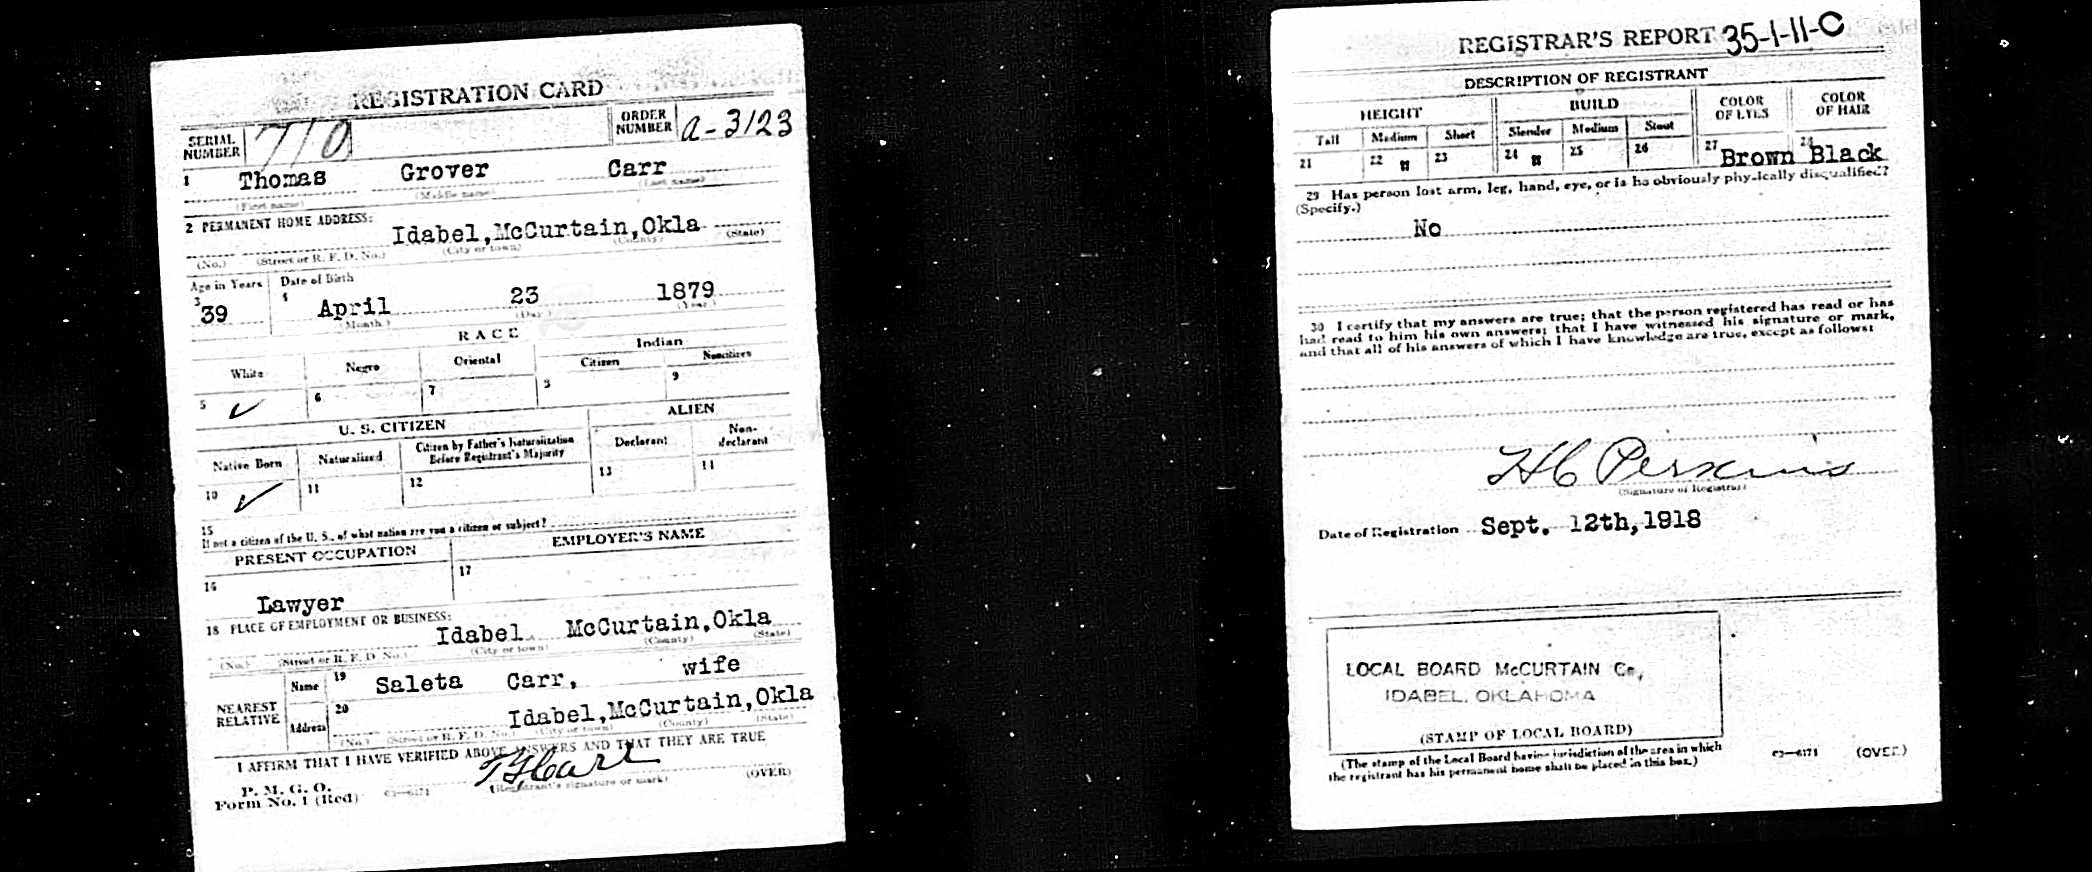 REGISTRATION CARD
SERIAL NUMBER 710 ORDER NUMBER a-3123
1 Thomas Grover Carr
(First name) (Middle name) (Last name)
2 PERMANENT HOME ADDRESS:
Idabel,McCurtain,Okla
(No.) (Street or R. F. D. No.) (City or town) (County) (State)
Age in Years Date of Birth
3 39 4 April 23 1879
(Month.) (Day.) (Year.)
RACE
White Negro Oriental Indian
Citizen Noncitizen
5 ✓ 6 7 8 9
U. S. CITIZEN ALIEN
Native Born Naturalized Citizen by Father's Naturalization Before Registrant's Majority Declarant Non-declarant
10 ✓ 11 12 13 14
15 If not a citizen of the U. S., of what nation are you a citizen or subject?
PRESENT OCCUPATION EMPLOYER'S NAME
16 Lawyer 17
18 PLACE OF EMPLOYMENT OR BUSINESS:
Idabel McCurtain,Okla
(No.) (Street or R. F. D. No.) (City or town) (County) (State)
NEAREST RELATIVE Name 19 Saleta Carr, wife
Address 20 Idabel,McCurtain,Okla
(No.) (Street or R. F. D. No.) (City or town) (County) (State)
I AFFIRM THAT I HAVE VERIFIED ABOVE ANSWERS AND THAT THEY ARE TRUE
T G Carr
P. M. G. O.
Form No. 1 (Red) 03—6171 (Registrant's signature or mark) (OVER)
REGISTRAR'S REPORT 35-1-11-C
DESCRIPTION OF REGISTRANT
HEIGHT BUILD COLOR OF EYES COLOR OF HAIR
Tall Medium Short Slender Medium Stout
21 22 " 23 24 " 25 26 27 Brown 28 Black
29 Has person lost arm, leg, hand, eye, or is he obviously physically disqualified?
(Specify.)
No
30 I certify that my answers are true; that the person registered has read or has
had read to him his own answers; that I have witnessed his signature or mark,
and that all of his answers of which I have knowledge are true, except as follows:
H C Perkins
(Signature of Registrar)
Date of Registration Sept. 12th,1918
LOCAL BOARD McCURTAIN Co,
IDABEL, OKLAHOMA
(STAMP OF LOCAL BOARD)
(The stamp of the Local Board having jurisdiction of the area in which
the registrant has his permanent home shall be placed in this box.)
03—6171 (OVER)